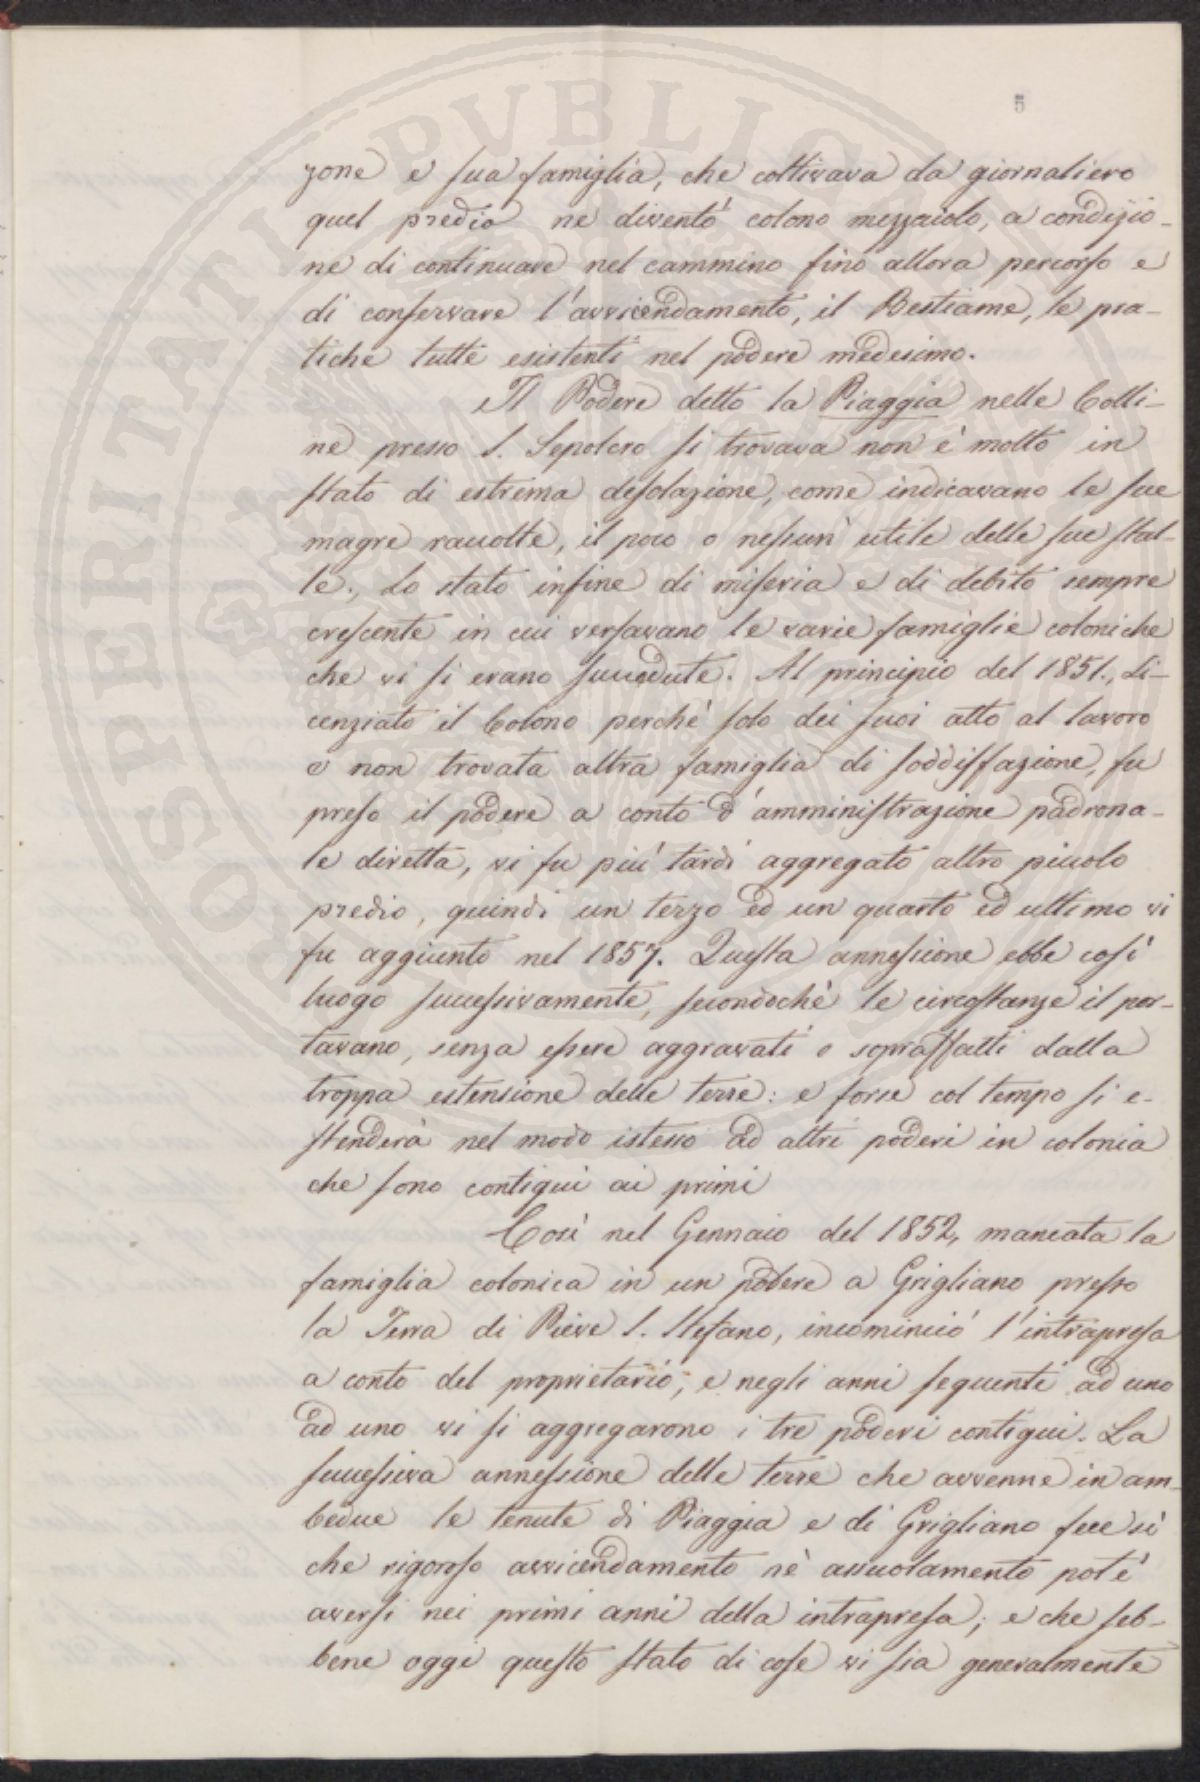 5
zone e sua famiglia, che coltivava da giornaliero
quel predio ne diventò colono mezzaiolo, a condizio-
ne di continuare nel cammino fino allora percorso e
di conservare l'avvicendamento, il Bestiame, le pra-
tiche tutte esistenti nel podere medesimo.
Il Podere detto la Piaggia nelle Colli-
ne presso S. Sepolcro si trovava non è molto in
stato di estrema desolazione, come indicavano le sue
magre raccolte, il poco o nessun utile delle sue stal-
le, Lo stato infine di miseria e di debito sempre
crescente in cui versavano le varie famiglie coloniche
che vi si erano succedute. Al principio del 1851., Li-
cenziato il Colono perchè solo dei suoi atto al lavoro
e non trovata altra famiglia di soddisfazione, fu
preso il podere a conto d'amministrazione padrona-
le diretta, vi fu più tardi aggregato altro piccolo
predio, quindi un terzo ed un quarto ed ultimo vi
fu aggiunto nel 1857. Questa annessione ebbe così
luogo successivamente, secondochè le circostanze il por-
tavano, senza essere aggravati o sopraffatti dalla
troppa estensione delle terre: e forse col tempo si e-
stenderà nel modo istesso ad altri poderi in colonia
che sono contigui ai primi
Così nel Gennaio del 1852, mancata la
famiglia colonica in un podere a Grigliano presso
la Terra di Pieve S. Stefano, incominciò l'intrapresa
a conto del proprietario; e negli anni seguenti ad uno
ad uno vi si aggregarono i tre poderi contigui. La
successiva annessione delle terre che avvenne in am-
bedue le tenute di Piaggia e di Grigliano fece sì
che rigoroso avvicendamento nè assuolamento potè
aversi nei primi anni della intrapresa; e che seb-
bene oggi questo stato di cose vi sia generalmente